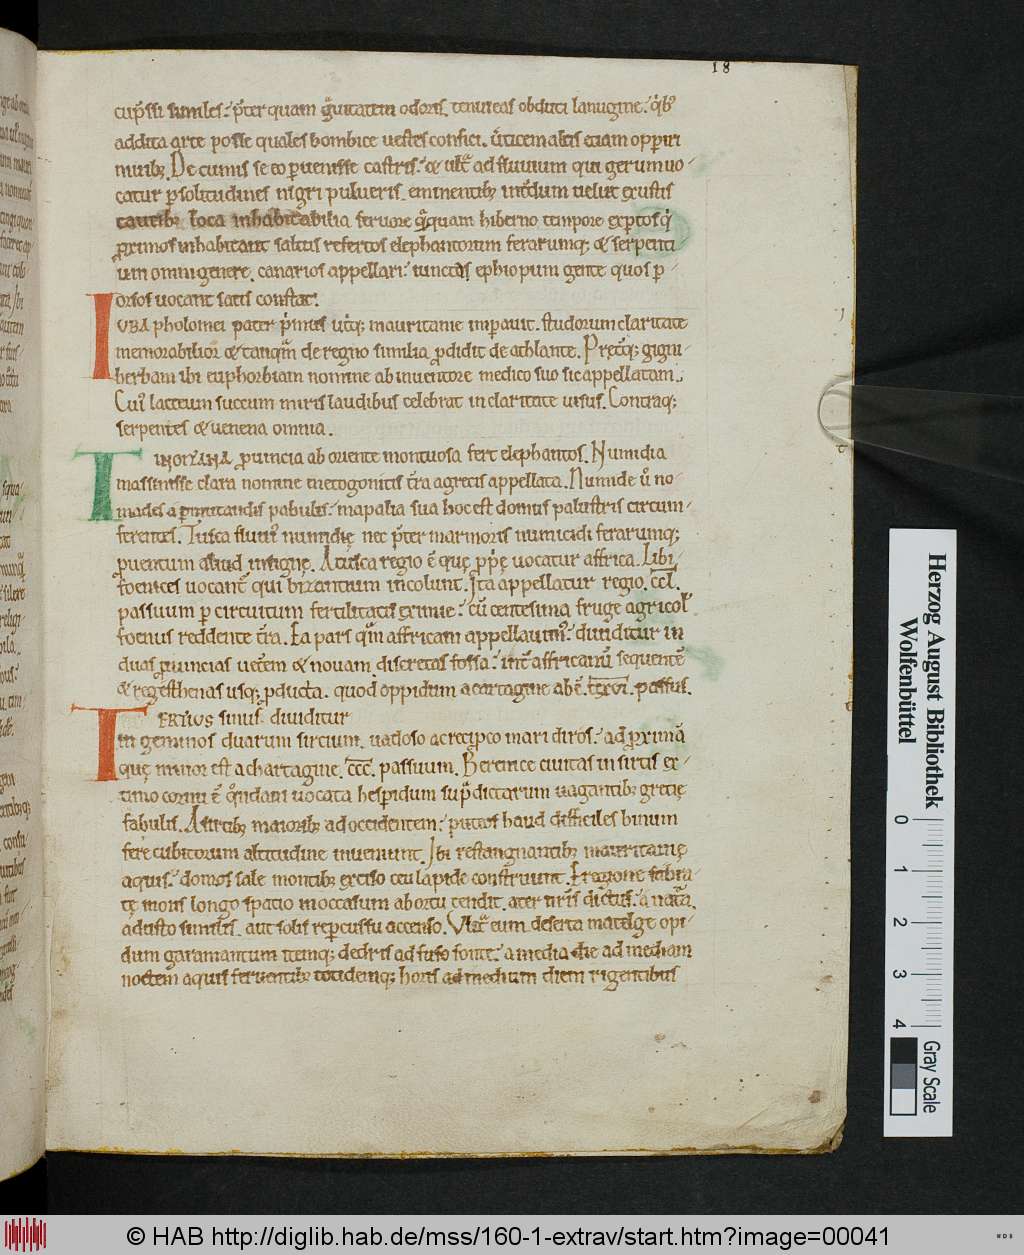 18
cup̄ssi similes. p̄ter quam g̃uitatem odoris. tenui eas obduci lanugine. q̃b;
addita arte posse quales bombice uestes confici. Ũticem altis etiam opperi
niuib;. Decumis se eo puenisse castris. & ult̃ ad fluuium qui ger uno
catur p solitudines nigri pulueris. eminentib; int̃dum uelut exustis
cautib; loca inhabitabilia feruore q̃quam hiberno tempore exptos q̃
proximos inhabitant saltus refertos elephantorum ferarumq; & serpenti
um omni genere. canarios appellari. iunctos ephiopum gente quos p
orsos uocant satis constat.
IUBA ptholomei pater p̃mus ut̃q; mauritanie imperauit. studiorum claritate
memorabilior & tanq̃m de regno similia pdidit de athlante. Pret̃q; gigni
herbam ibi euphorbiam nomine ab inuentore medico suo sic appellatam.
Cui lacteum succum miris laudibus celebrat in claritate uisus. Contraq;
serpentes & uenena omnia.
TINGITANA puincia ab oriente montuosa fert elephantos. Numidia
massinisse clara nomine metogonitis t̃ra a grecis appellata. Numide ũ no
mades a pmutandis pabulis. mapalia sua hoc est domus palustris circum
ferentes. Tusca fluui numidię nec p̃ter marmoris numicidi ferarumq;
puentum aliud insignę. A tusca regio ē quę pp̃ę uocatur affrica. Libi
foenices uocant qui bizantium incolunt. Ita appellatur regio. ccl.
passuum p circuitum fertilitatis eximie. cū centesima fruge agricol
foenus reddente t̃ra. Ea pars q̃m affricam appellauim. diuiditur in
duas puincias uet̃em & nouam discretas fossa. int̃ affricanū sequentē
& reges thenas usq; pducta. quod oppidum a cartagine abē. ccxvi. passus.
TERTIUS sinus diuiditur
in geminos duarum sircium. uadoso ac recipco mari diros. ad primā
quę minor est a chartagine. ccc. passuum. Berenice ciuitas in sirtis ex
timo cornu ē q̃ndam uocata hesperidum sup̃ dictarum uagantib; grecię
fabulis. A sirtib; maiorib; ad occidentem. puteos haud difficiles binum
fere cubitorum altitudine inueniunt. Ibi restangnantib; mauritanię
aquis. domos sale montib; exciso ceu lapide construunt. E regione fabia
tę mons longo spatio in occasum ab ortu tendit. ater n̄ris dictus. a nata
adusto similis. aut solis repcussu accenso. Ult̃ eum deserta matelge opi
dum garamantum itemq; dedris adfuso fonte. a media die ad mediam
noctem aquis feruentib; totidemq; horis ad medium diem rigentibus
Herzog August Bibliothek
Wolfenbüttel
0 1 2 3 4
Gray Scale
© HAB http://diglib.hab.de/mss/160-1-extrav/start.htm?image=00041